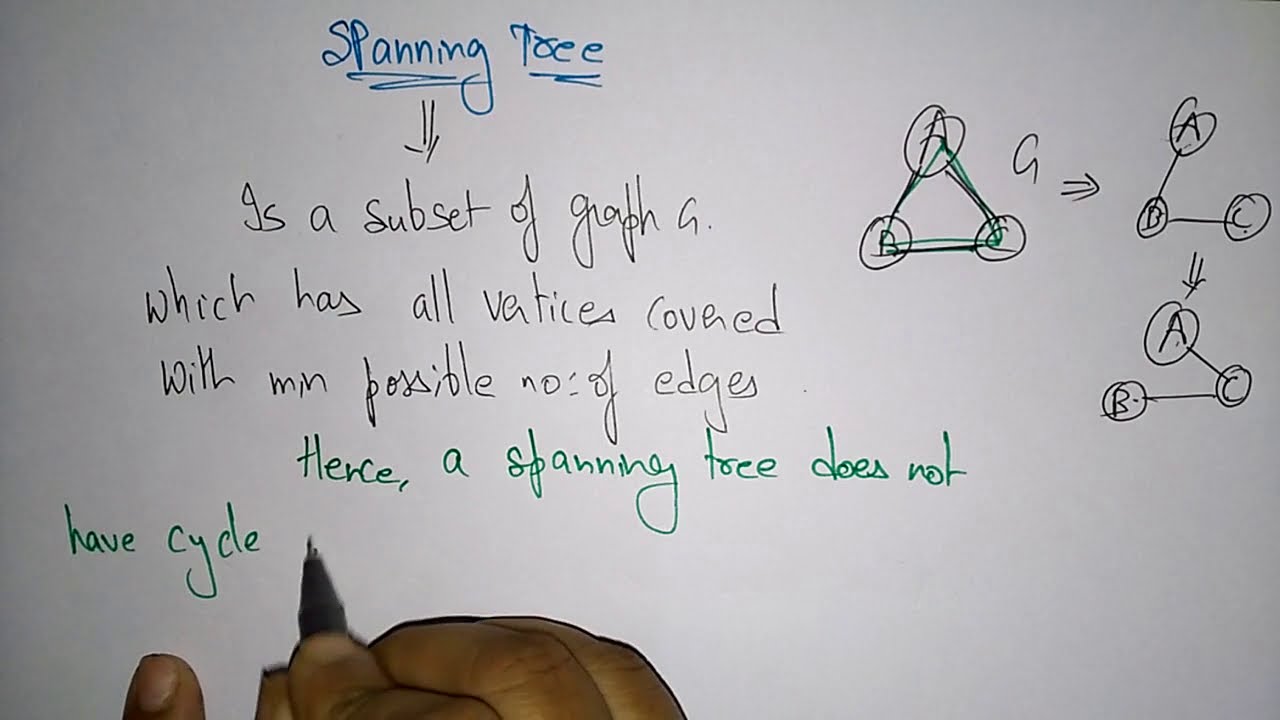 Spanning Tree
Is a subset of graph G.
which has all vertices covered
with min possible no: of edges.
Hence, a spanning tree does not
have cycle
A
B C
G
A
B C
A
B C